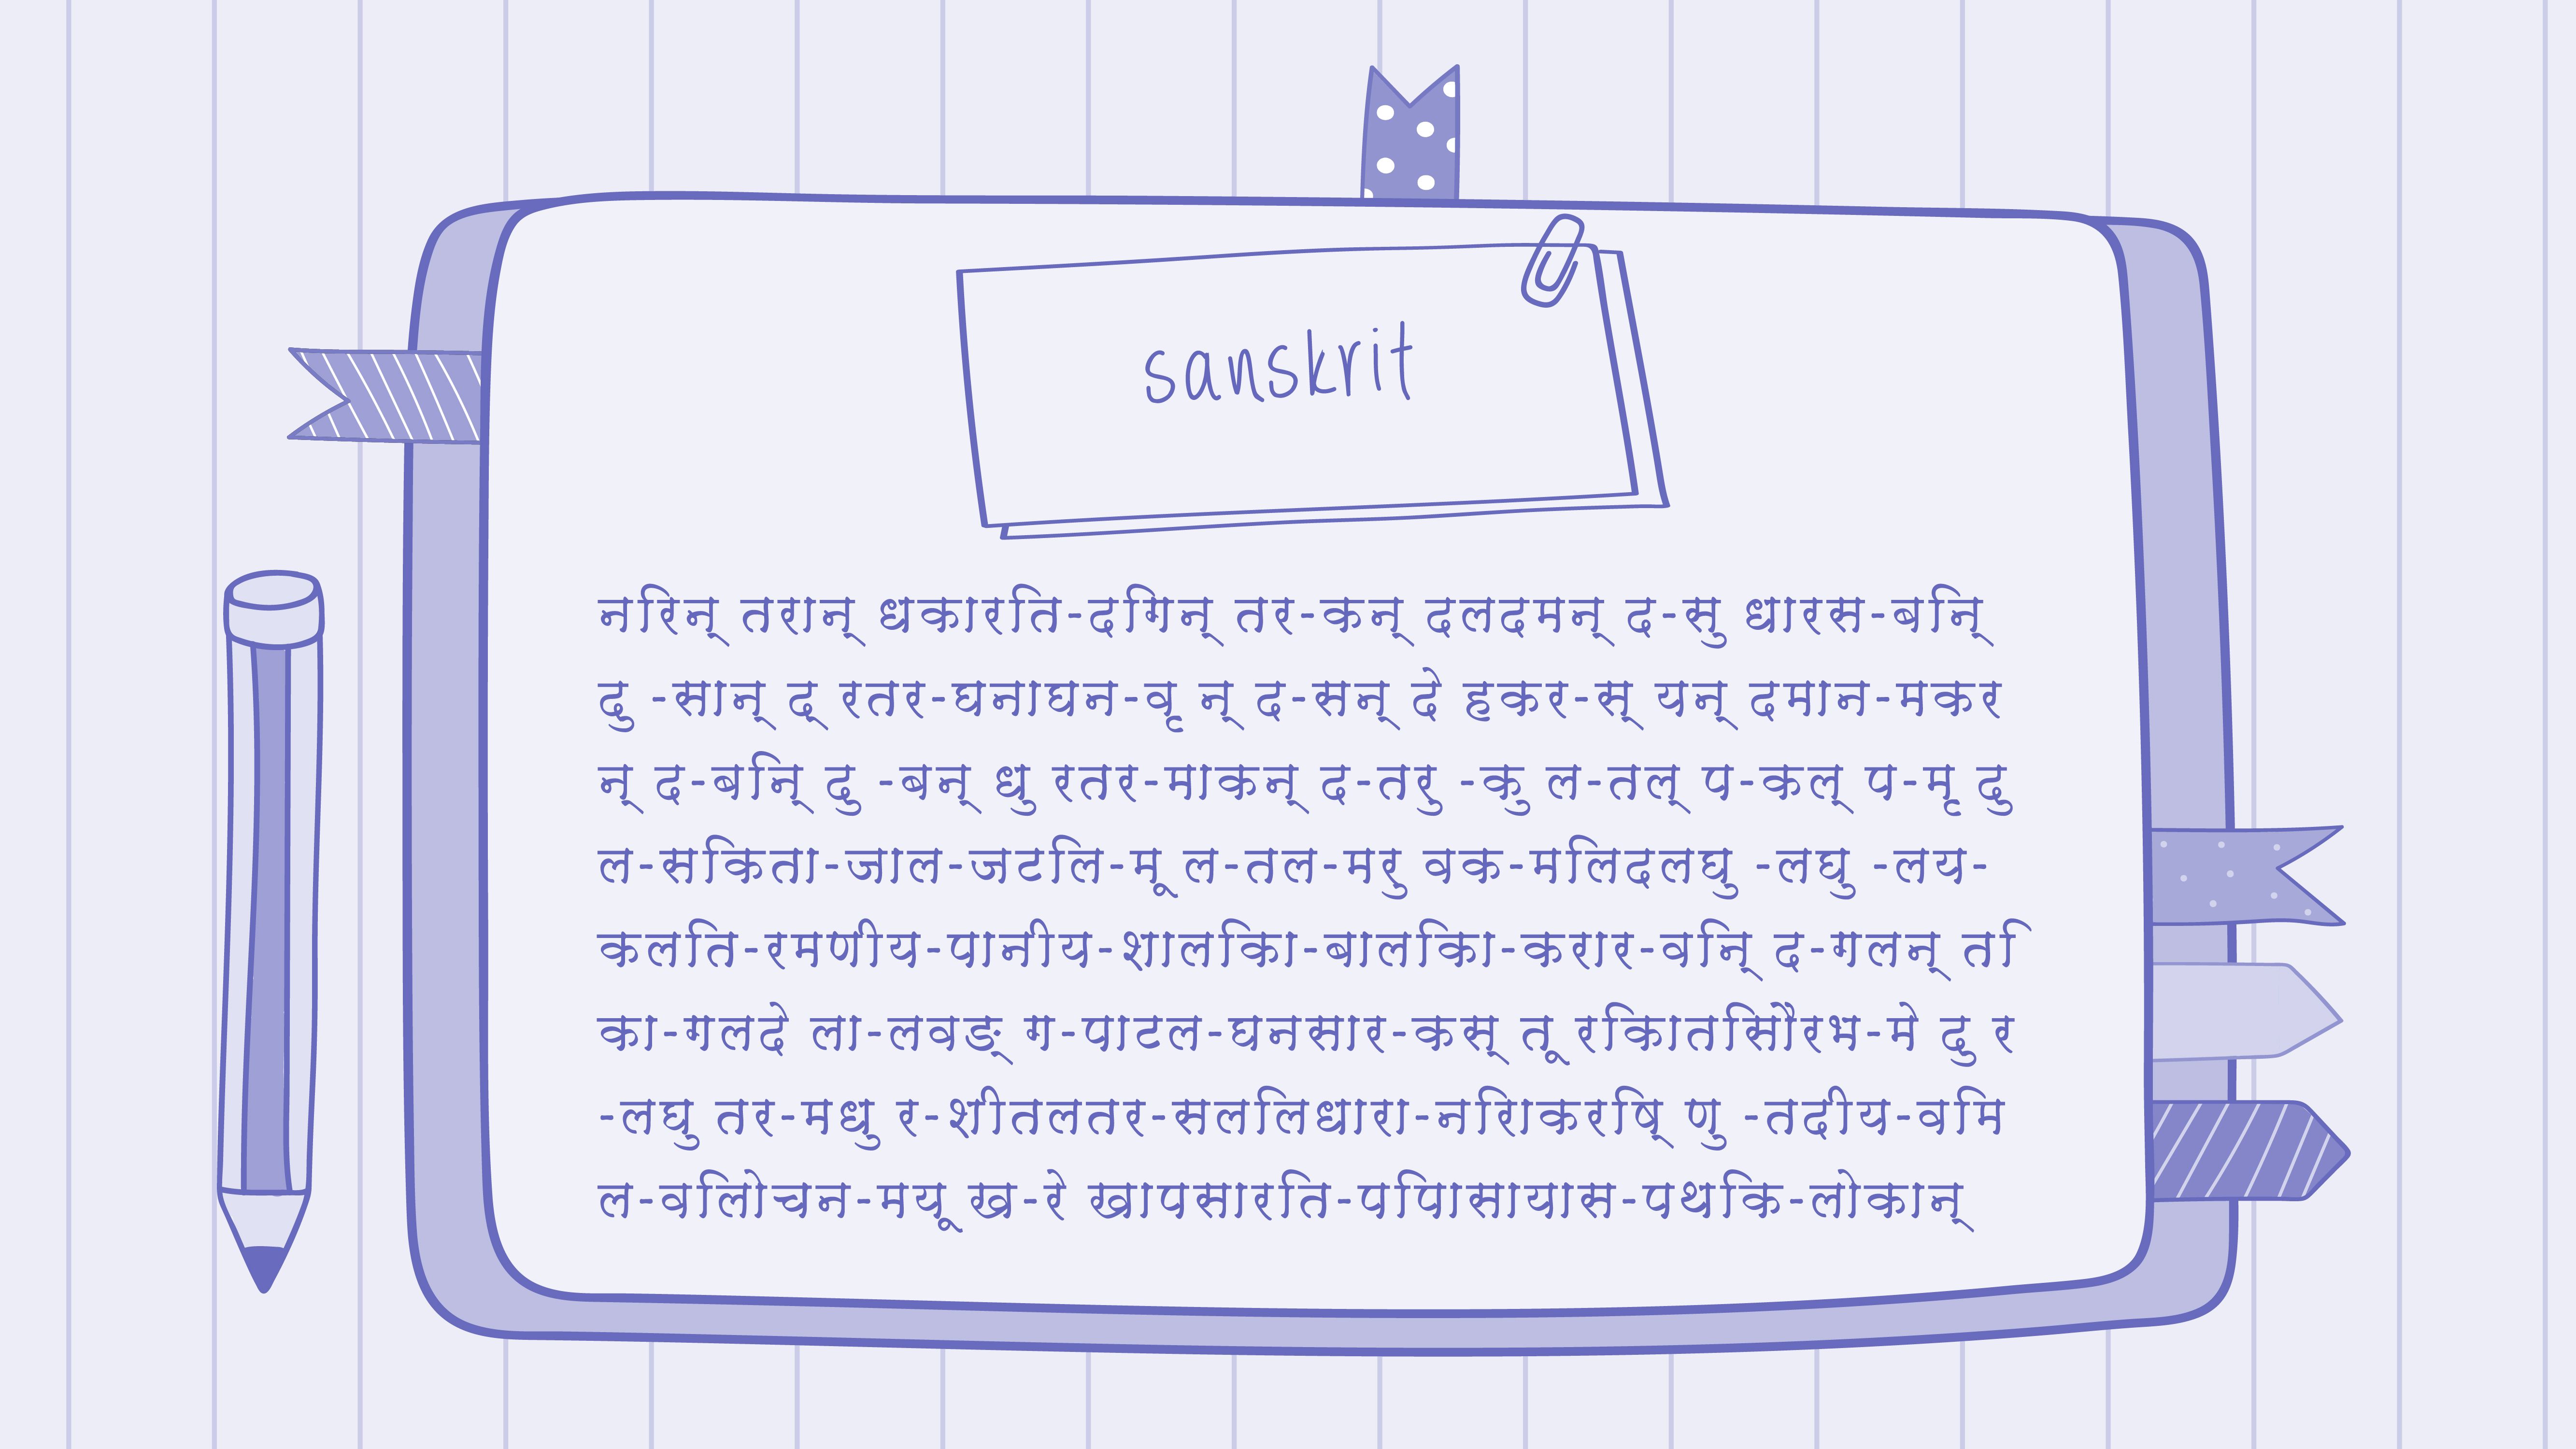 sanskrit
नरिन् तरान् धकारति-दगिन् तर-कन् दलदमन् द-सु धारस-बनि्
दु -सान् द् रतर-घनाघन-वृ न् द-सन् दे हकर-स् यन् दमान-मकर
न् द-बनि् दु -बन् धु रतर-माकन् द-तरु -कु ल-तल् प-कल् प-मृ दु
ल-सकिता-जाल-जटलि-मू ल-तल-मरु वक-मलिदलघु -लघु -लय-
कलति-रमणीय-पानीय-शालकिा-बालकिा-करार-वनि् द-गलन् ति
का-गलदे ला-लवङ् ग-पाटल-घनसार-कस् तू रकिातसिौरभ-मे दु र
-लघु तर-मधु र-शीतलतर-सललिधारा-नरिाकरषि् णु -तदीय-वमि
ल-वलिोचन-मयू ख-रे खापसारति-पपिासायास-पथकि-लोकान्